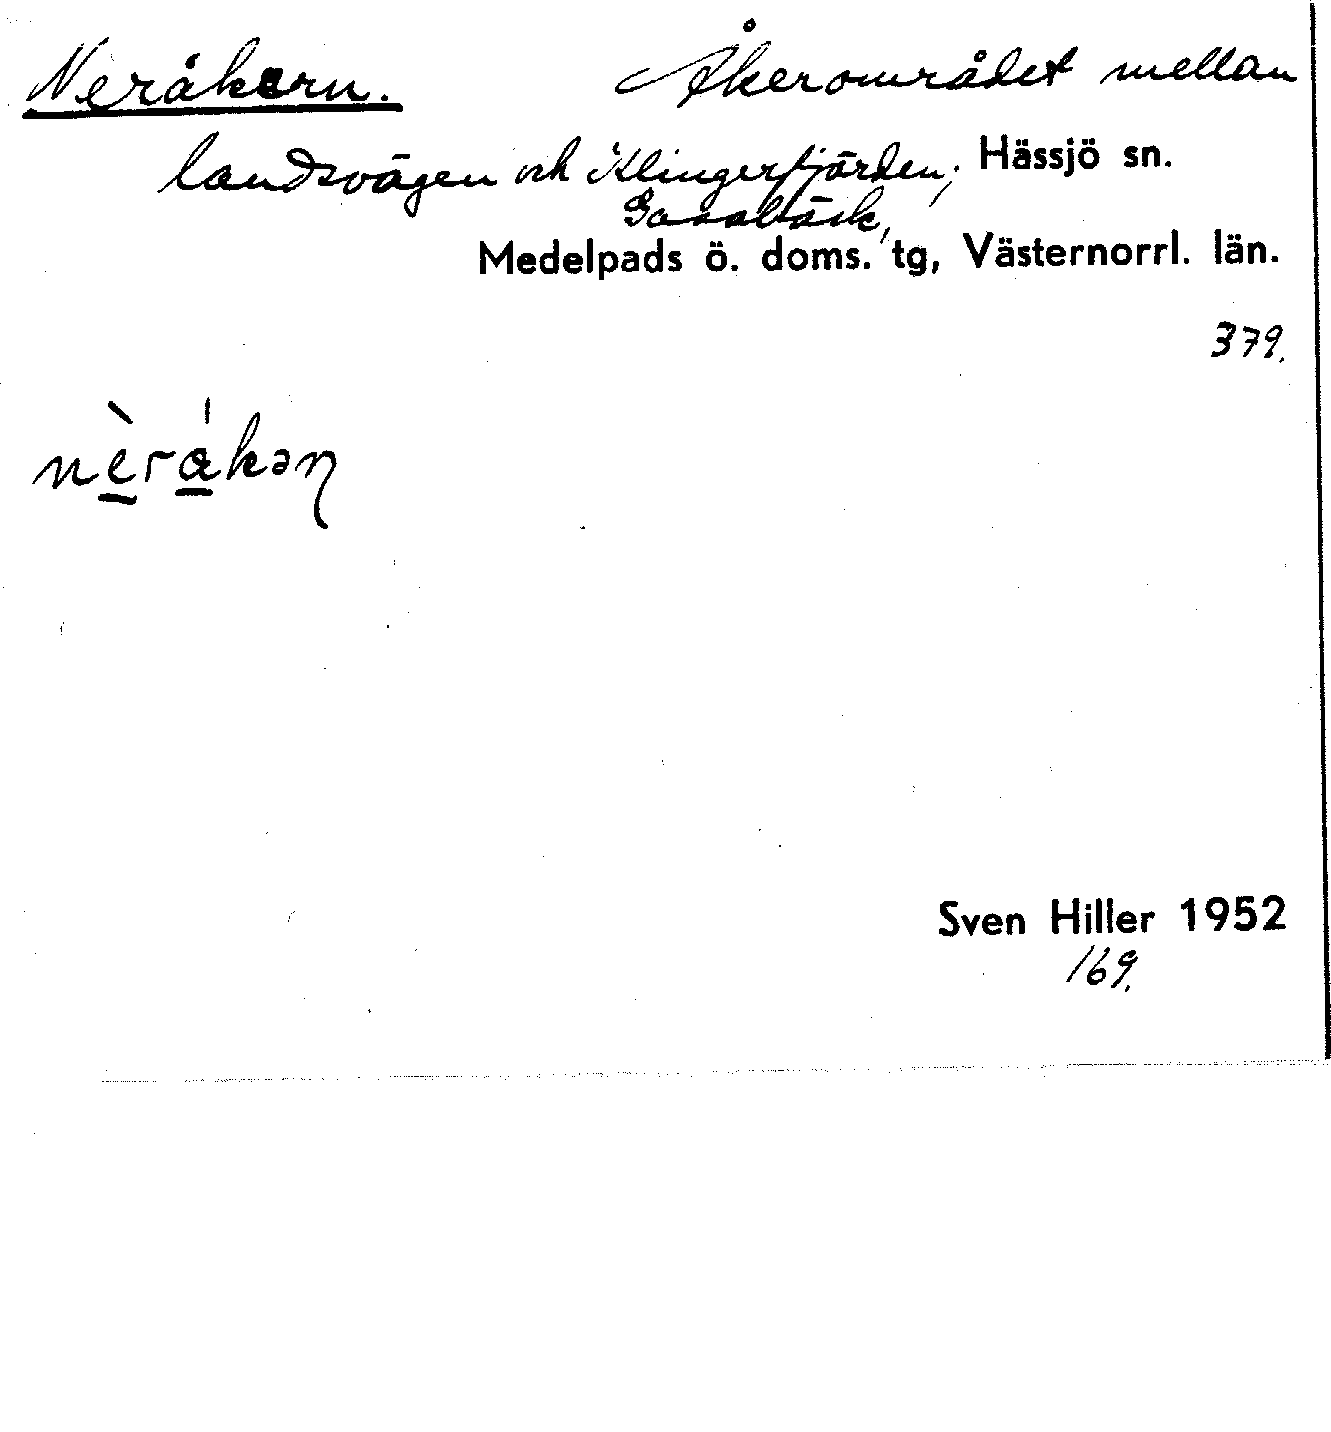 Neråkern. Åkerområdet mellan
landsvägen och Klingerfjärden, Hässjö sn.
Medelpads ö. doms. tg, Västernorrl. län.
379.
nèrákən
Sven Hiller 1952
169.